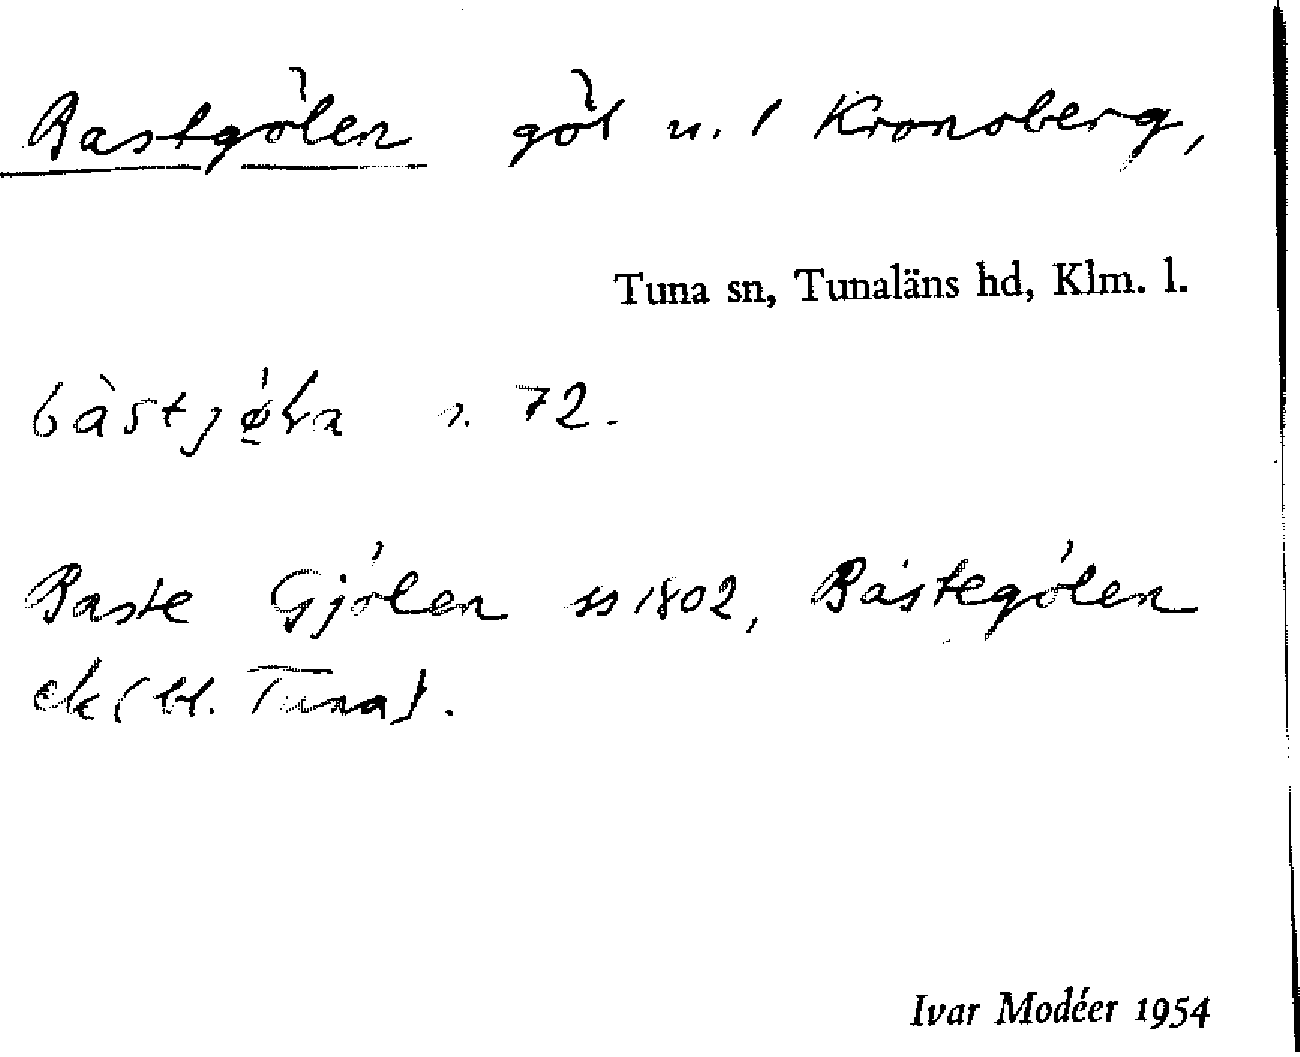 Bastgölen göl n. 1 Kronoberg,
Tuna sn, Tunaläns hd, Klm. l.
72.
Baste Gjölen ss 1802, Bastegölen
ek (bl. Tuna).
Ivar Modéer 1954